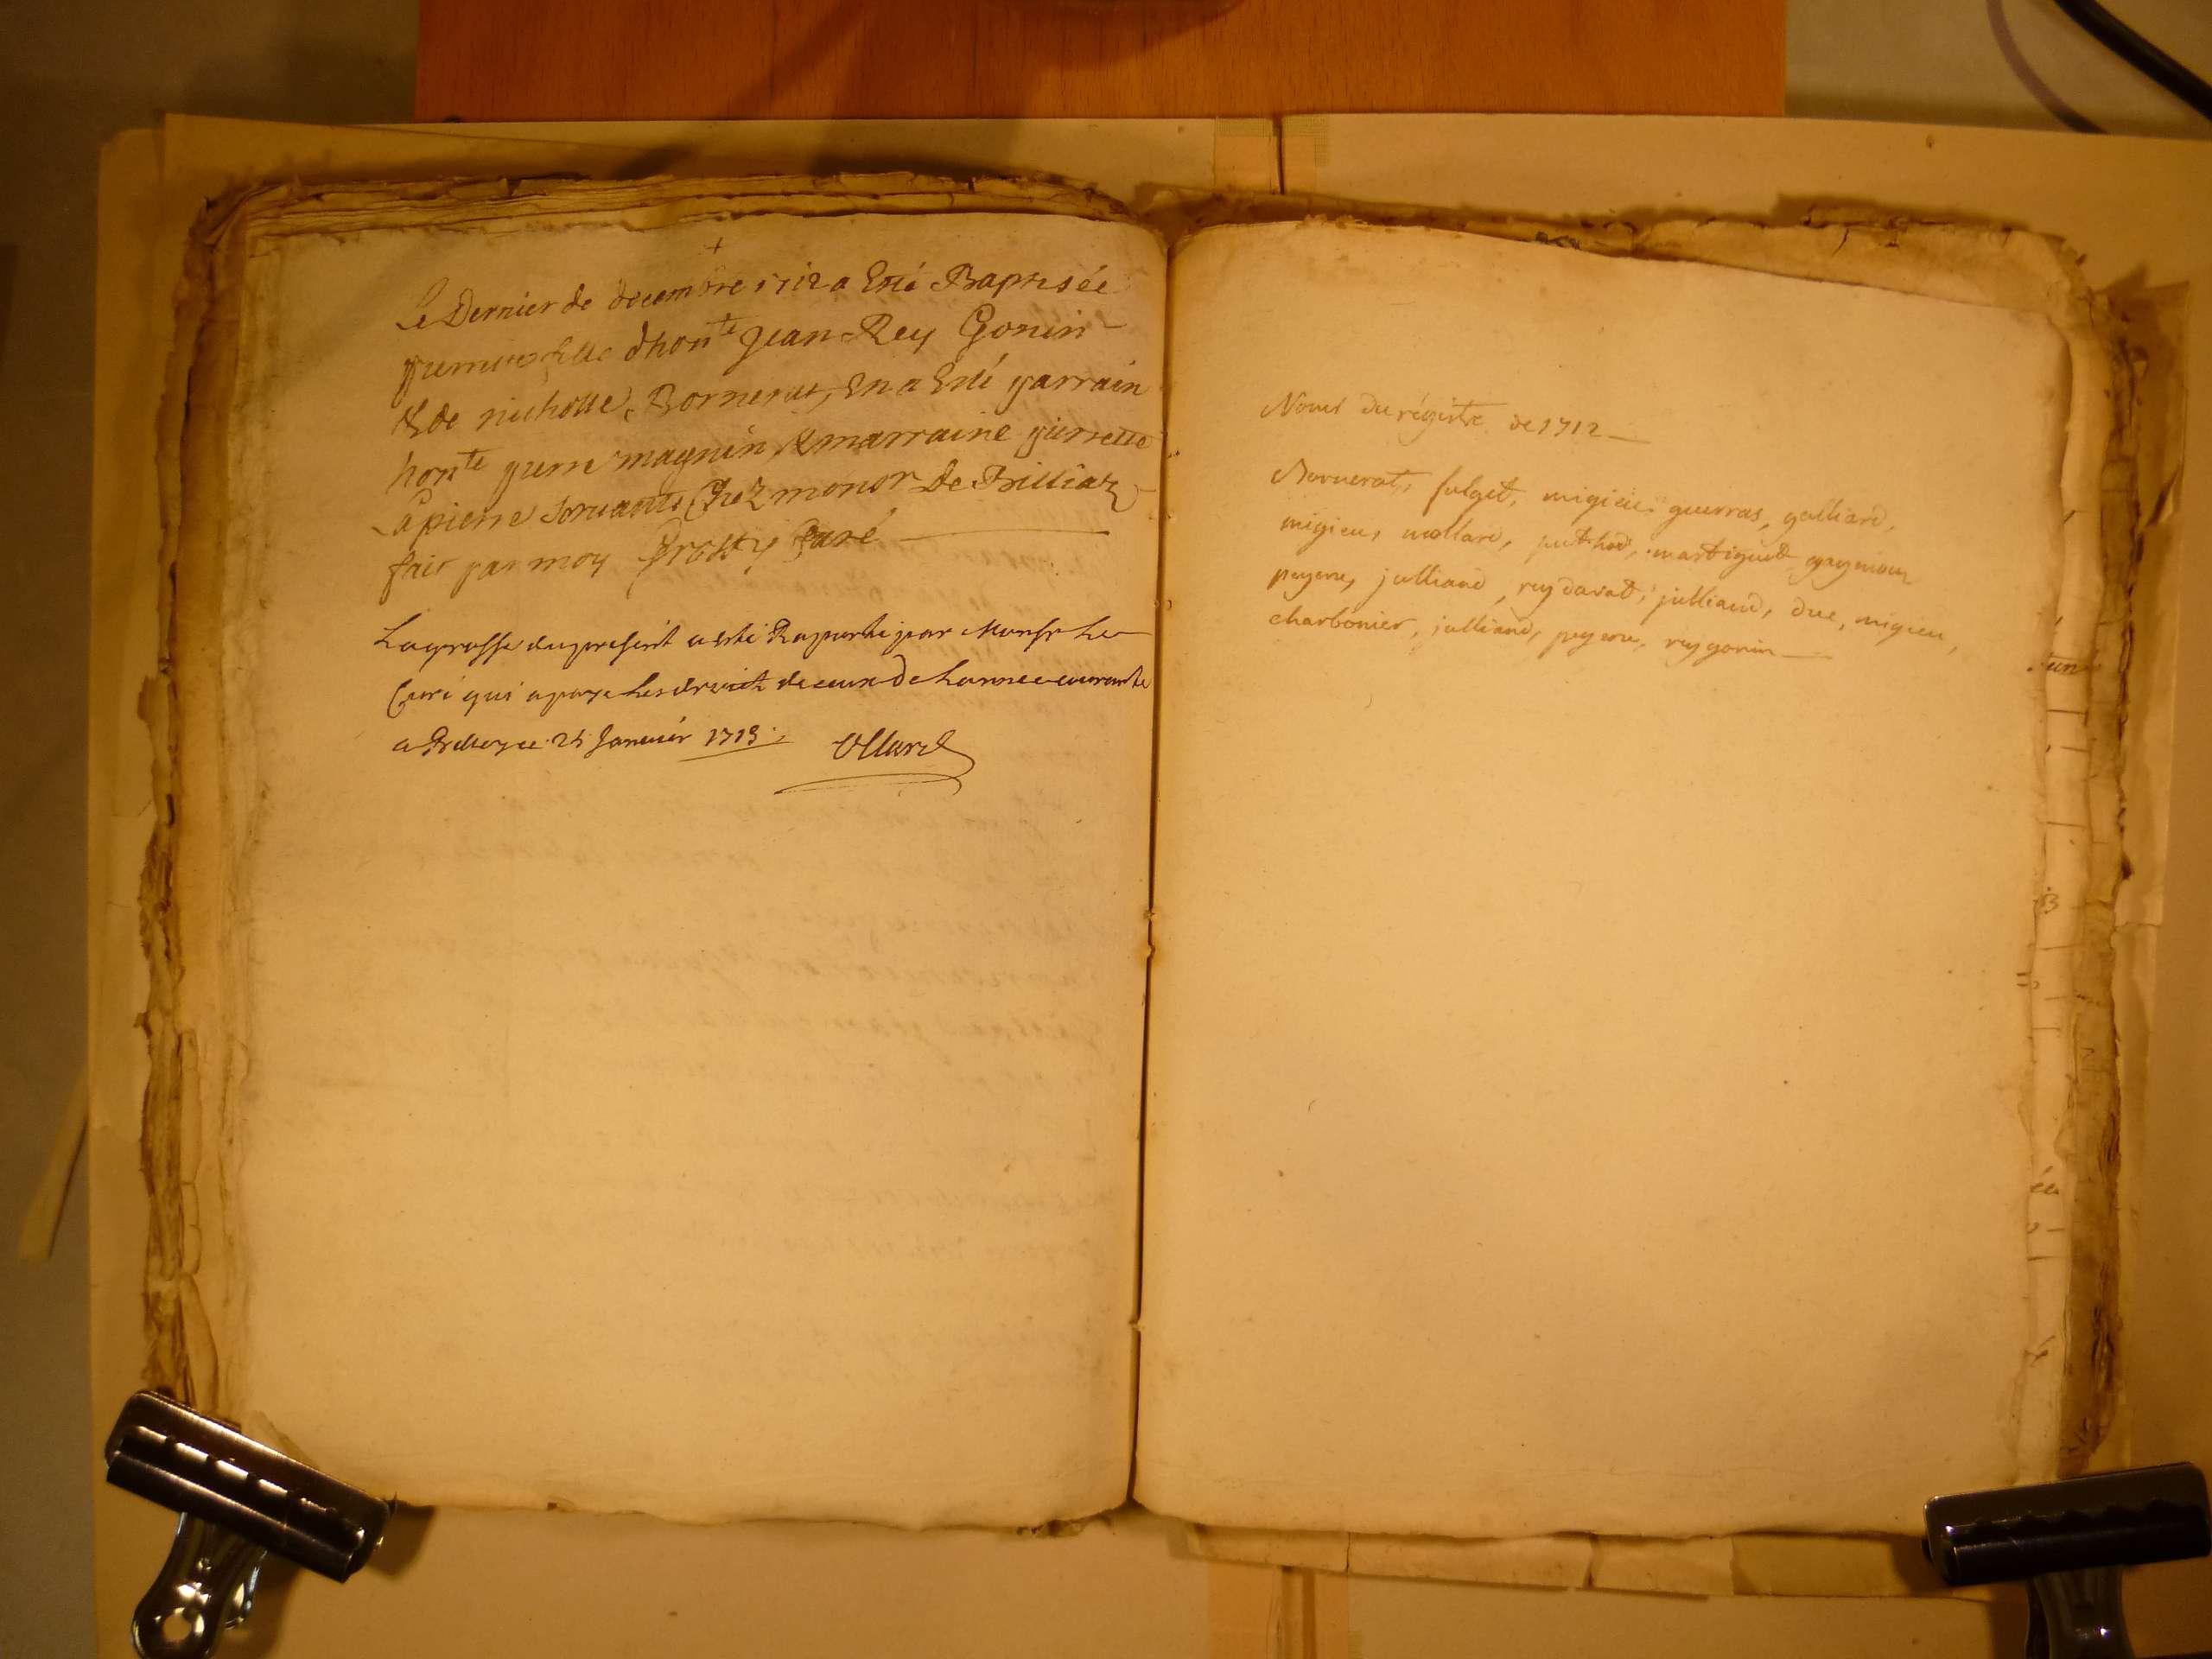 +
Le Dernier de decembre 1712 a Esté Baptisée
fille d'hon.te Jean Rey Gonin
& de nicholle Bornerat, En a Esté parrain
hon.te pierre magnin, & marraine pierrette
Lapierre servante chez monsr de Billiat
fait par moy Curé
La grosse du present a esté Raporté par Monsr Le
Curé qui a paye les droict de ceux de L'annee courante
a ce 25 Janvier 1713.
Noms du régistre de 1712
Bornerat, fulget, migieu, guerras, galliard,
migieu, mollard, puthod, martignat
peyene, julliand, rey darat, julliand, duc, migieu,
charbonier, julliand, peyene, rey gonin